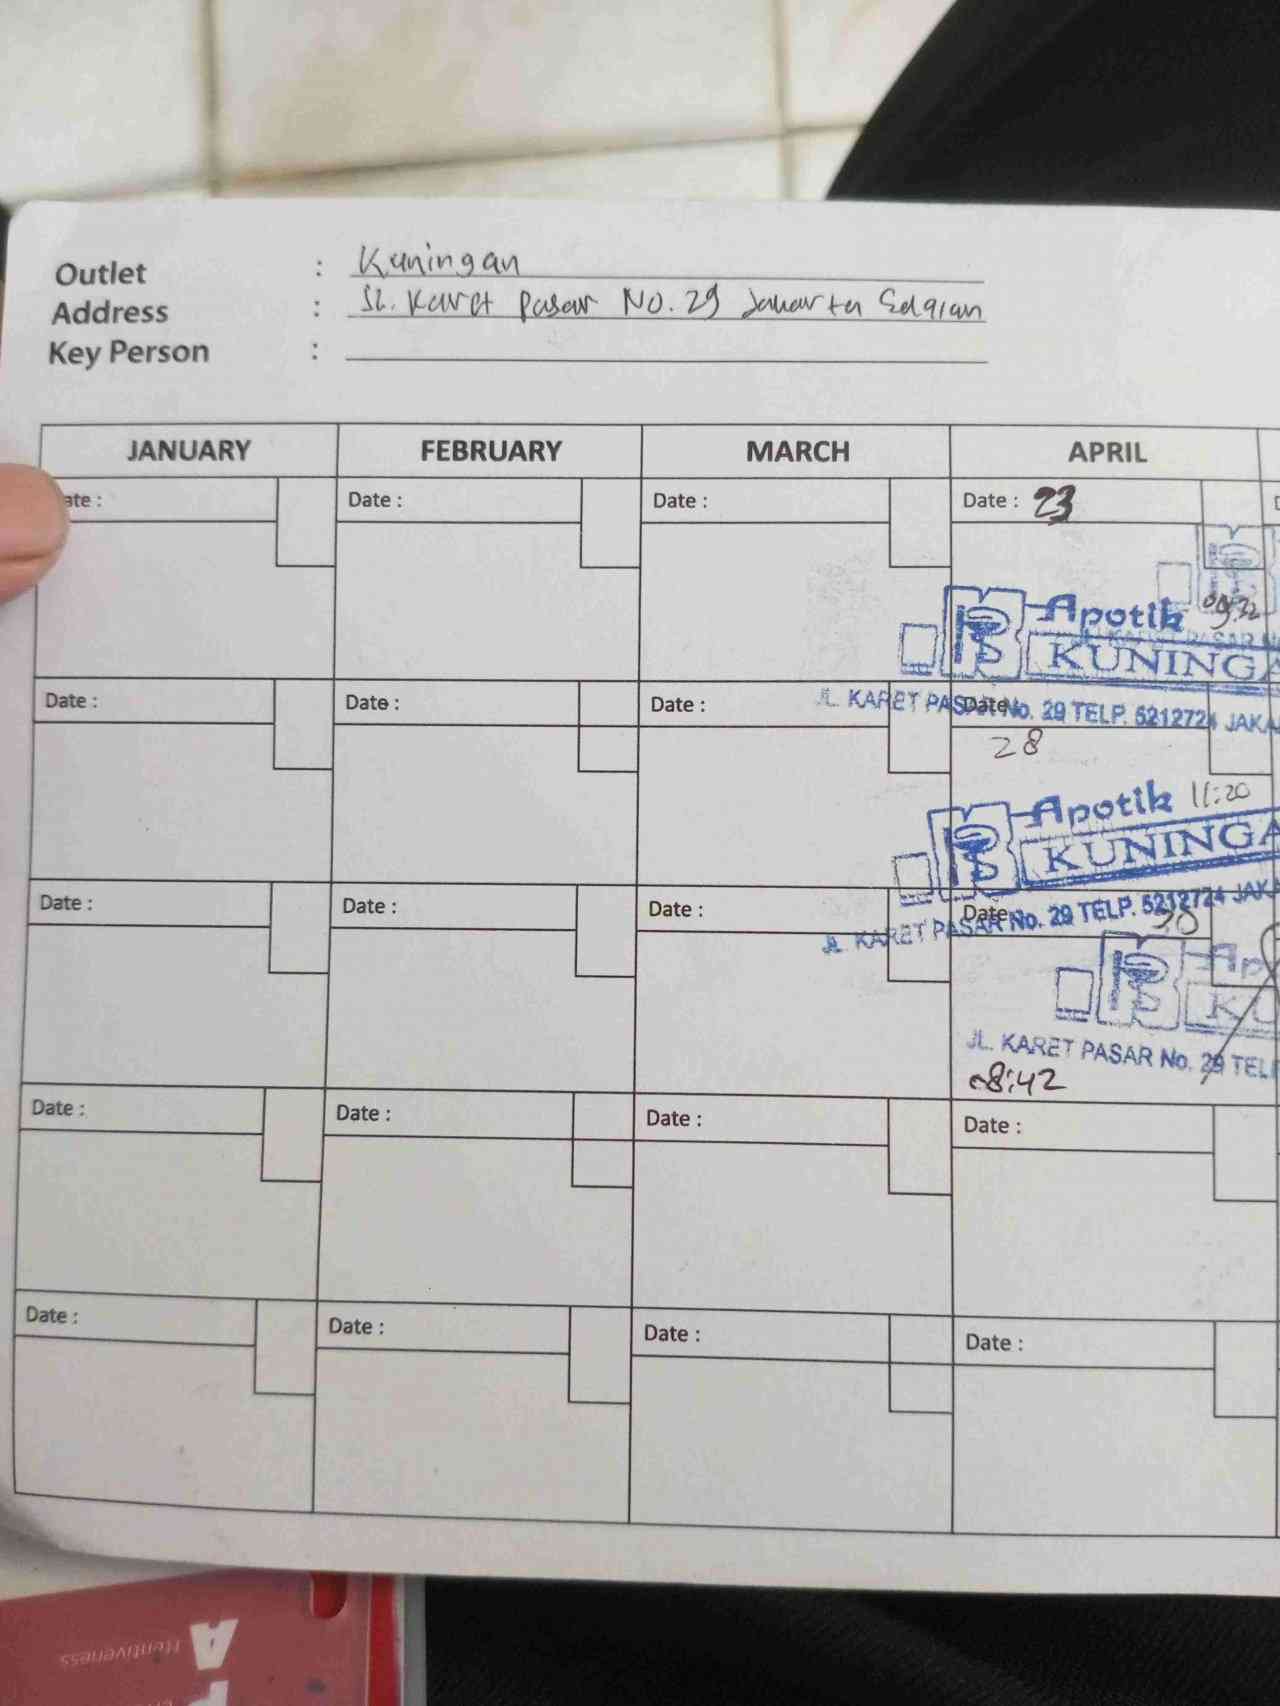 Outlet : Kuningan
Address : JL. Karet Pasar No. 29 Jakarta Selatan
Key Person :
JANUARY FEBRUARY MARCH APRIL
ate : Date : Date : Date : 23
09:32
Apotik
KUNINGA
JL. KARET PASAR No. 29 TELP. 5212724 JAKA
Date : Date : Date : Date
28
Apotik 11:20
KUNINGA
JL. KARET PASAR No. 29 TELP. 5212724 JAKA
Date : Date : Date : Date 30
Ap
KU
JL. KARET PASAR No. 29 TEL
08:42
Date : Date : Date : Date :
Date : Date : Date : Date :
ttentiveness
A